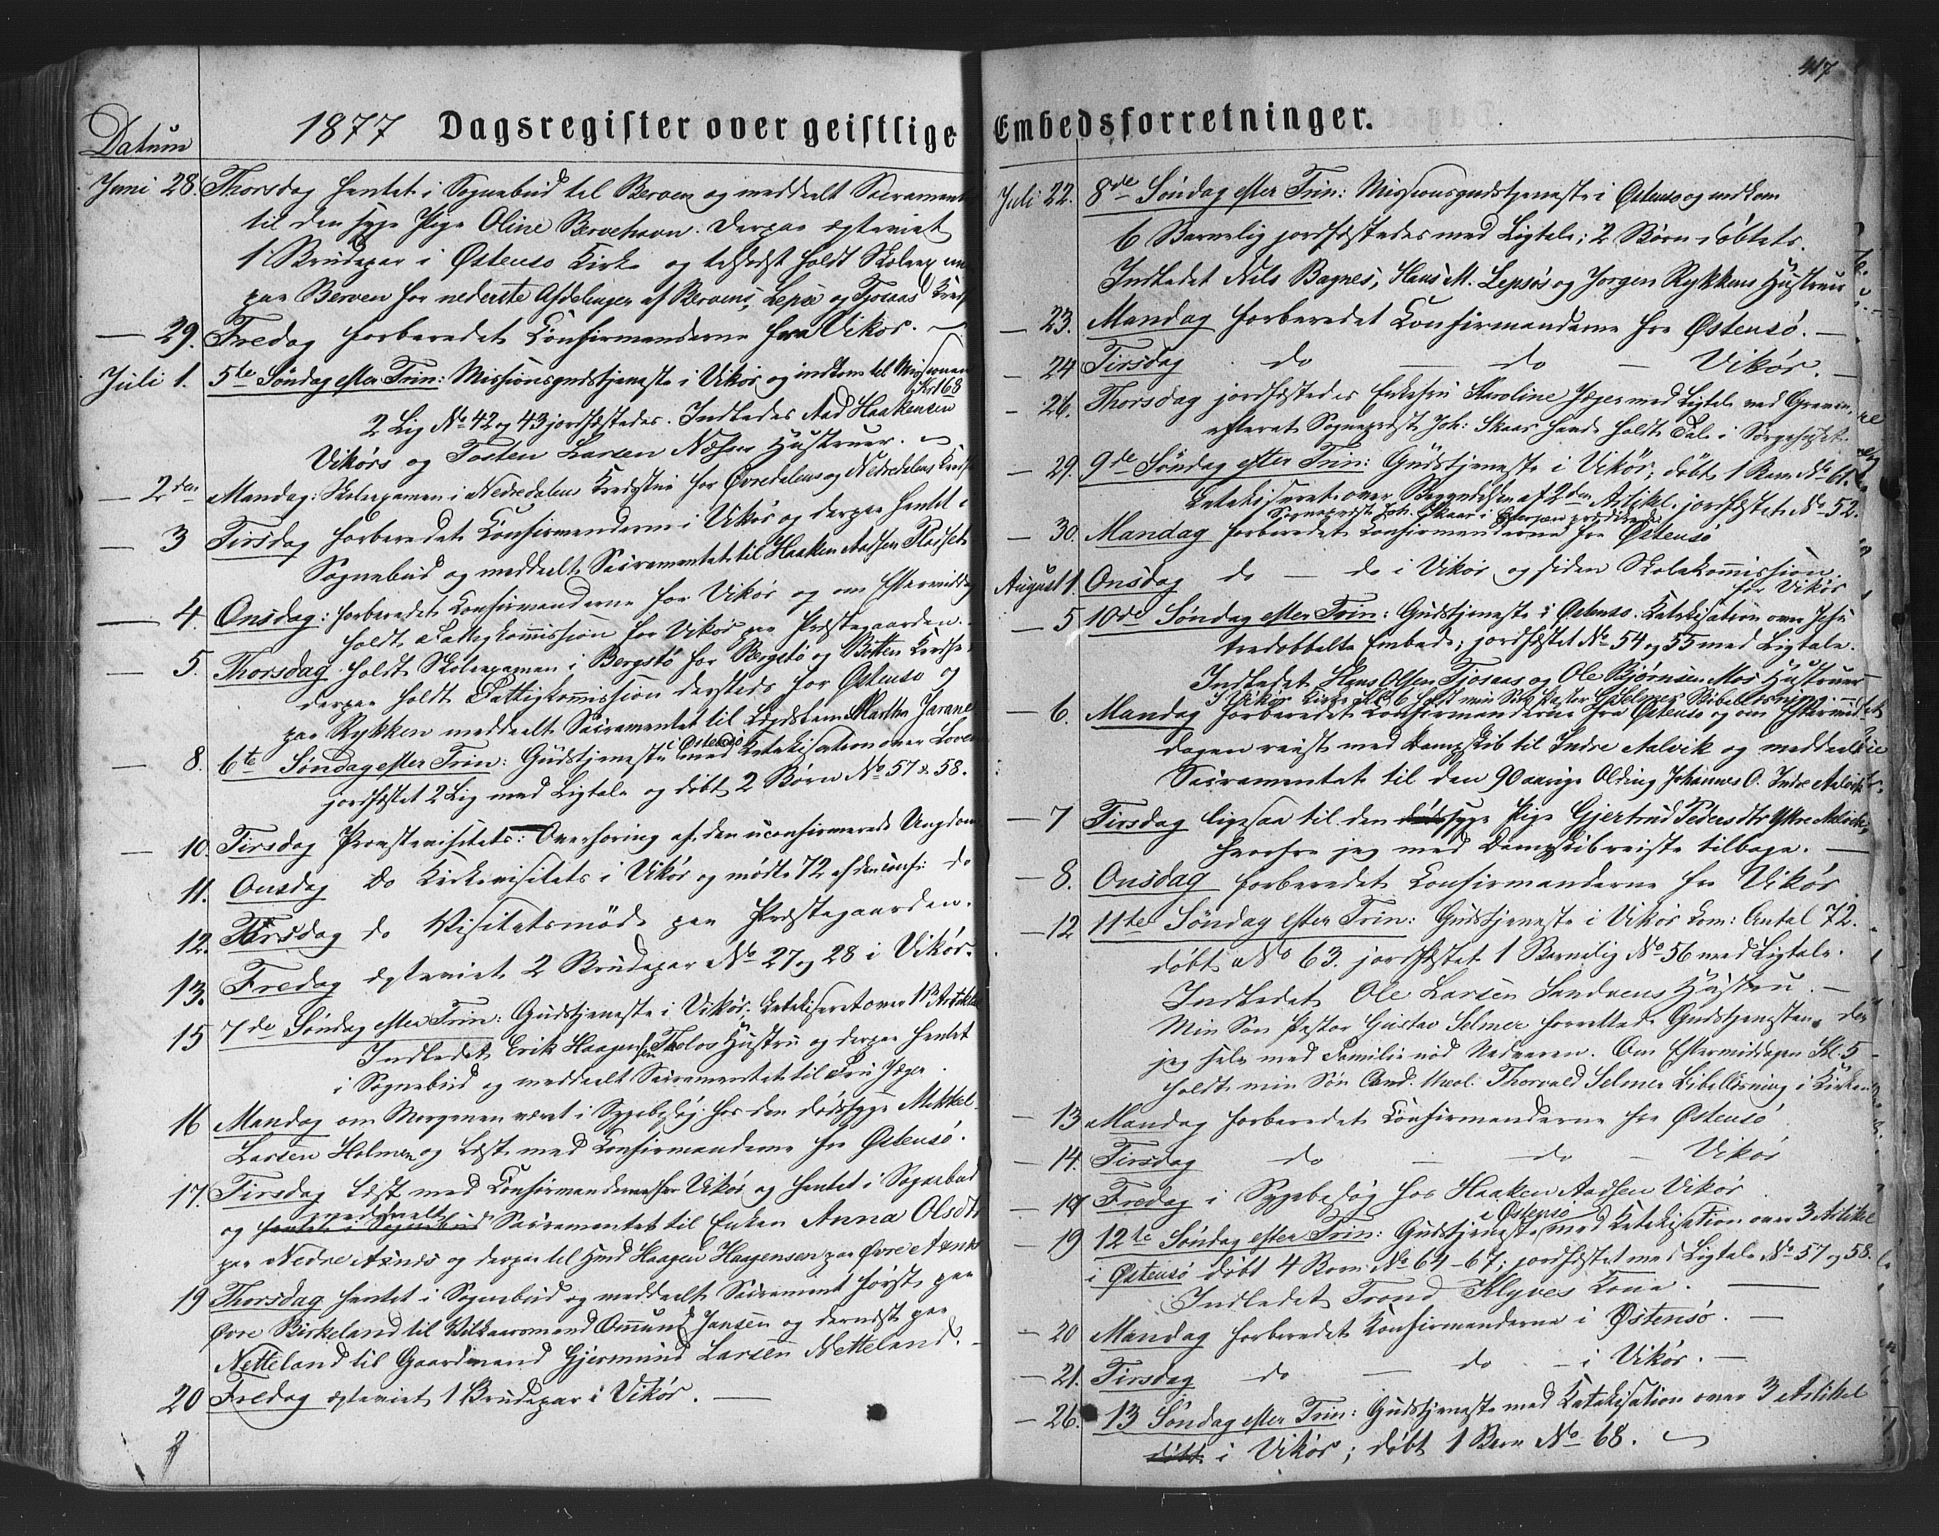 417
1877 Dagsregister over geistlige Embedsforretninger.
Datum
Juni 28. Thorsdag hentet i Sognebud til Berven og meddeelt Sacramentet
til den syge Pige Oline Bervehavn. Derpaa ægteviet
1 Brudepar i Østensø Kirke og holdt Skole
paa Berven for nederste Afdelinger af Bervens, Lepsø og Tjoraas Kreds
— 29. Fredag forberedet Confirmanderne fra Vikør. —
Juli 1. 5te Søndag efter Trin: Missionsgudstjeneste i Vikør og indkom til Missionen
Kr 168
2 Lig No 42 og 43 jordfæstedes. Indledes Aad Haakensen
Vikørs og Tosten Larsen Hustruer.
— 2den Mandag: Skoleexamen i Nedredalens Kredsstue for Øvredalens og Nedredalens Kreds
— 3 Tirsdag forberedet Confirmanderne i Vikør og derpaa hentet i
Sognebud og meddeelt Sacramentet til Haaken Aadsen
— 4. Onsdag: forberedet Confirmanderne for Vikør og om Eftermiddag
holdt Fattigkommission for Vikør paa Præstegaarden.
— 5. Thorsdag holdt Skoleexamen i Bergstø for Bergstø og Botten Kredse
derpaa holdt Fattigkommission dersteds for Østensø og
paa Rykken meddeelt Sacramentet til Martha
— 8. 6te Søndag efter Trin: Gudstjeneste i Østensø med Katekisation over Loven
jordfæstet 2 Lig med Ligtale og døbt 2 Børn No 57 & 58.
— 10. Tirsdag Provstevisitats: Overhøring af den uconfirmerede Ungdom
11. Onsdag do Kirkevisitats i Vikør og mødte 72 af den conf: do
12. Torsdag do Visitatsmøde paa Præstegaarden.
13. Fredag ægteviet 2 Brudepar No 27 og 28 i Vikør.
15 7de Søndag efter Trin: Gudstjeneste i Vikør; katekiseret over 1ste Artikkel
Indledet Erik Haagensen Hustru og derpaa hentet
i Sognebud og meddeelt Sacramentet til Fru Jæger.
16 Mandag om Morgenen været i Sygebesøg hos den dødssyge Mikkel
Larsen Holmen og læst med Confirmanderne fra Østensø.
17. Tirsdag læst med Confirmanderne fra Vikør og hentet i Sognebud
meddeelt
og hentet i Sognebud Sacramentet til Enken Anna Olsdtr
paa Nedre Axnes og derpaa til Haagen Haagensen paa Øvre Axnes
19 Thorsdag hentet i Sognebud og meddeelt Sacrament først paa
Øvre Birkeland til Vilkaarsmand Omund Jansen og dernæst paa
Netteland til Gaardmand Gjermund Larsen Netteland. —
20 Fredag ægteviet 1 Brudepar i Vikør. —
Juli 22. 8de Søndag efter Trin: Missionsgudstjeneste i Østensø og indkom
6 Barnelig jordfæstedes med Ligtale; 2 Børn døbtes.
Indledet Nils Bagnes, Hans M. Lepsøs og Jørgen Rykkens Hustruer
— 23. Mandag forberedet Confirmanderne fra Østensø. —
— 24 Tirsdag do — do — Vikør. —
— 26. Thorsdag jordfæstedes Enkefru Karoline Jæger med Ligtale ved Graven,
efterat Sogneprest Joh: Skaar havde holdt Tale i Sørgehuset.
— 29. 9de Søndag efter Trin: Gudstjeneste i Vikør, døbt 1 Barn No 61.
katekiseret over Begyndelsen af 2den Artikel. jordfæstet No 52.
Sogneprest Joh. Skaar i prædikede
— 30. Mandag forberedet Confirmanderne fra Østensø
August 1. Onsdag do — do i Vikør og siden Skolekommission
for Vikør
— 5 10de Søndag efter Trin: Gudstjeneste i Østensø. Katekisation over Jesu
tredobbelte Embede; jordfæstet No 54 og 55 med Ligtale.
Indledet Hans Olsen Tjoraas og Ole Bjørnsen Mos Hustruer
I Vikør Kirke Kl. 6 holdt min Søn Pastor G. Selmer Bibellæsning. —
— 6. Mandag forberedet Confirmanderne fra Østensø og om Eftermid
dagen reist med Dampskib til Indre Aalvik og meddeelt
Sacramentet til den 90 aarige Olding Johannes O. Indre Aalvik
— 7 Tirsdag ligesaa til den dødssyge Pige Gjertrud Pedersdtr Ytre Aalvik,
hvorfra jeg med Dampskib reiste tilbage. —
— 8. Onsdag forberedet Confirmanderne fra Vikør
— 12 11te Søndag efter Trin: Gudstjeneste i Vikør Com: Antal 72.
døbt No 63. jordfæstet 1 Barnelig No 56 med Ligtale.
Indledet Ole Larsen Sandvens Hustru. —
Min Søn Pastor Gustav Selmer forrettede Gudstjenesten, da
jeg selv med Familie nød Nadveren. Om Eftermiddagen Kl. 5
holdt min Søn Cand. theol. Thorvald Selmer Bibellæsning i Kirken
— 13 Mandag forberedet Confirmanderne fra Østensø
— 14. Tirsdag do — do — Vikør
— 17 Fredag i Sygebesøg hos Haaken Aadsen Vikør
— 19 12te Søndag efter Trin: Gudstjeneste i Østensø med Katekisation over 3 Artikel
i Østensø døbt 4 Børn No 64-67; jordfæstet med Ligtale No 57 og 58.
Indledet Trond Klyves Kone. —
— 20 Mandag forberedet Confirmanderne i Østensø. —
— 21. Tirsdag do — do — i Vikør. —
— 26. 13 Søndag efter Trin: Gudstjeneste med Katekisation over 3 Artikel
døbt i Vikør; døbt 1 Barn No 68.